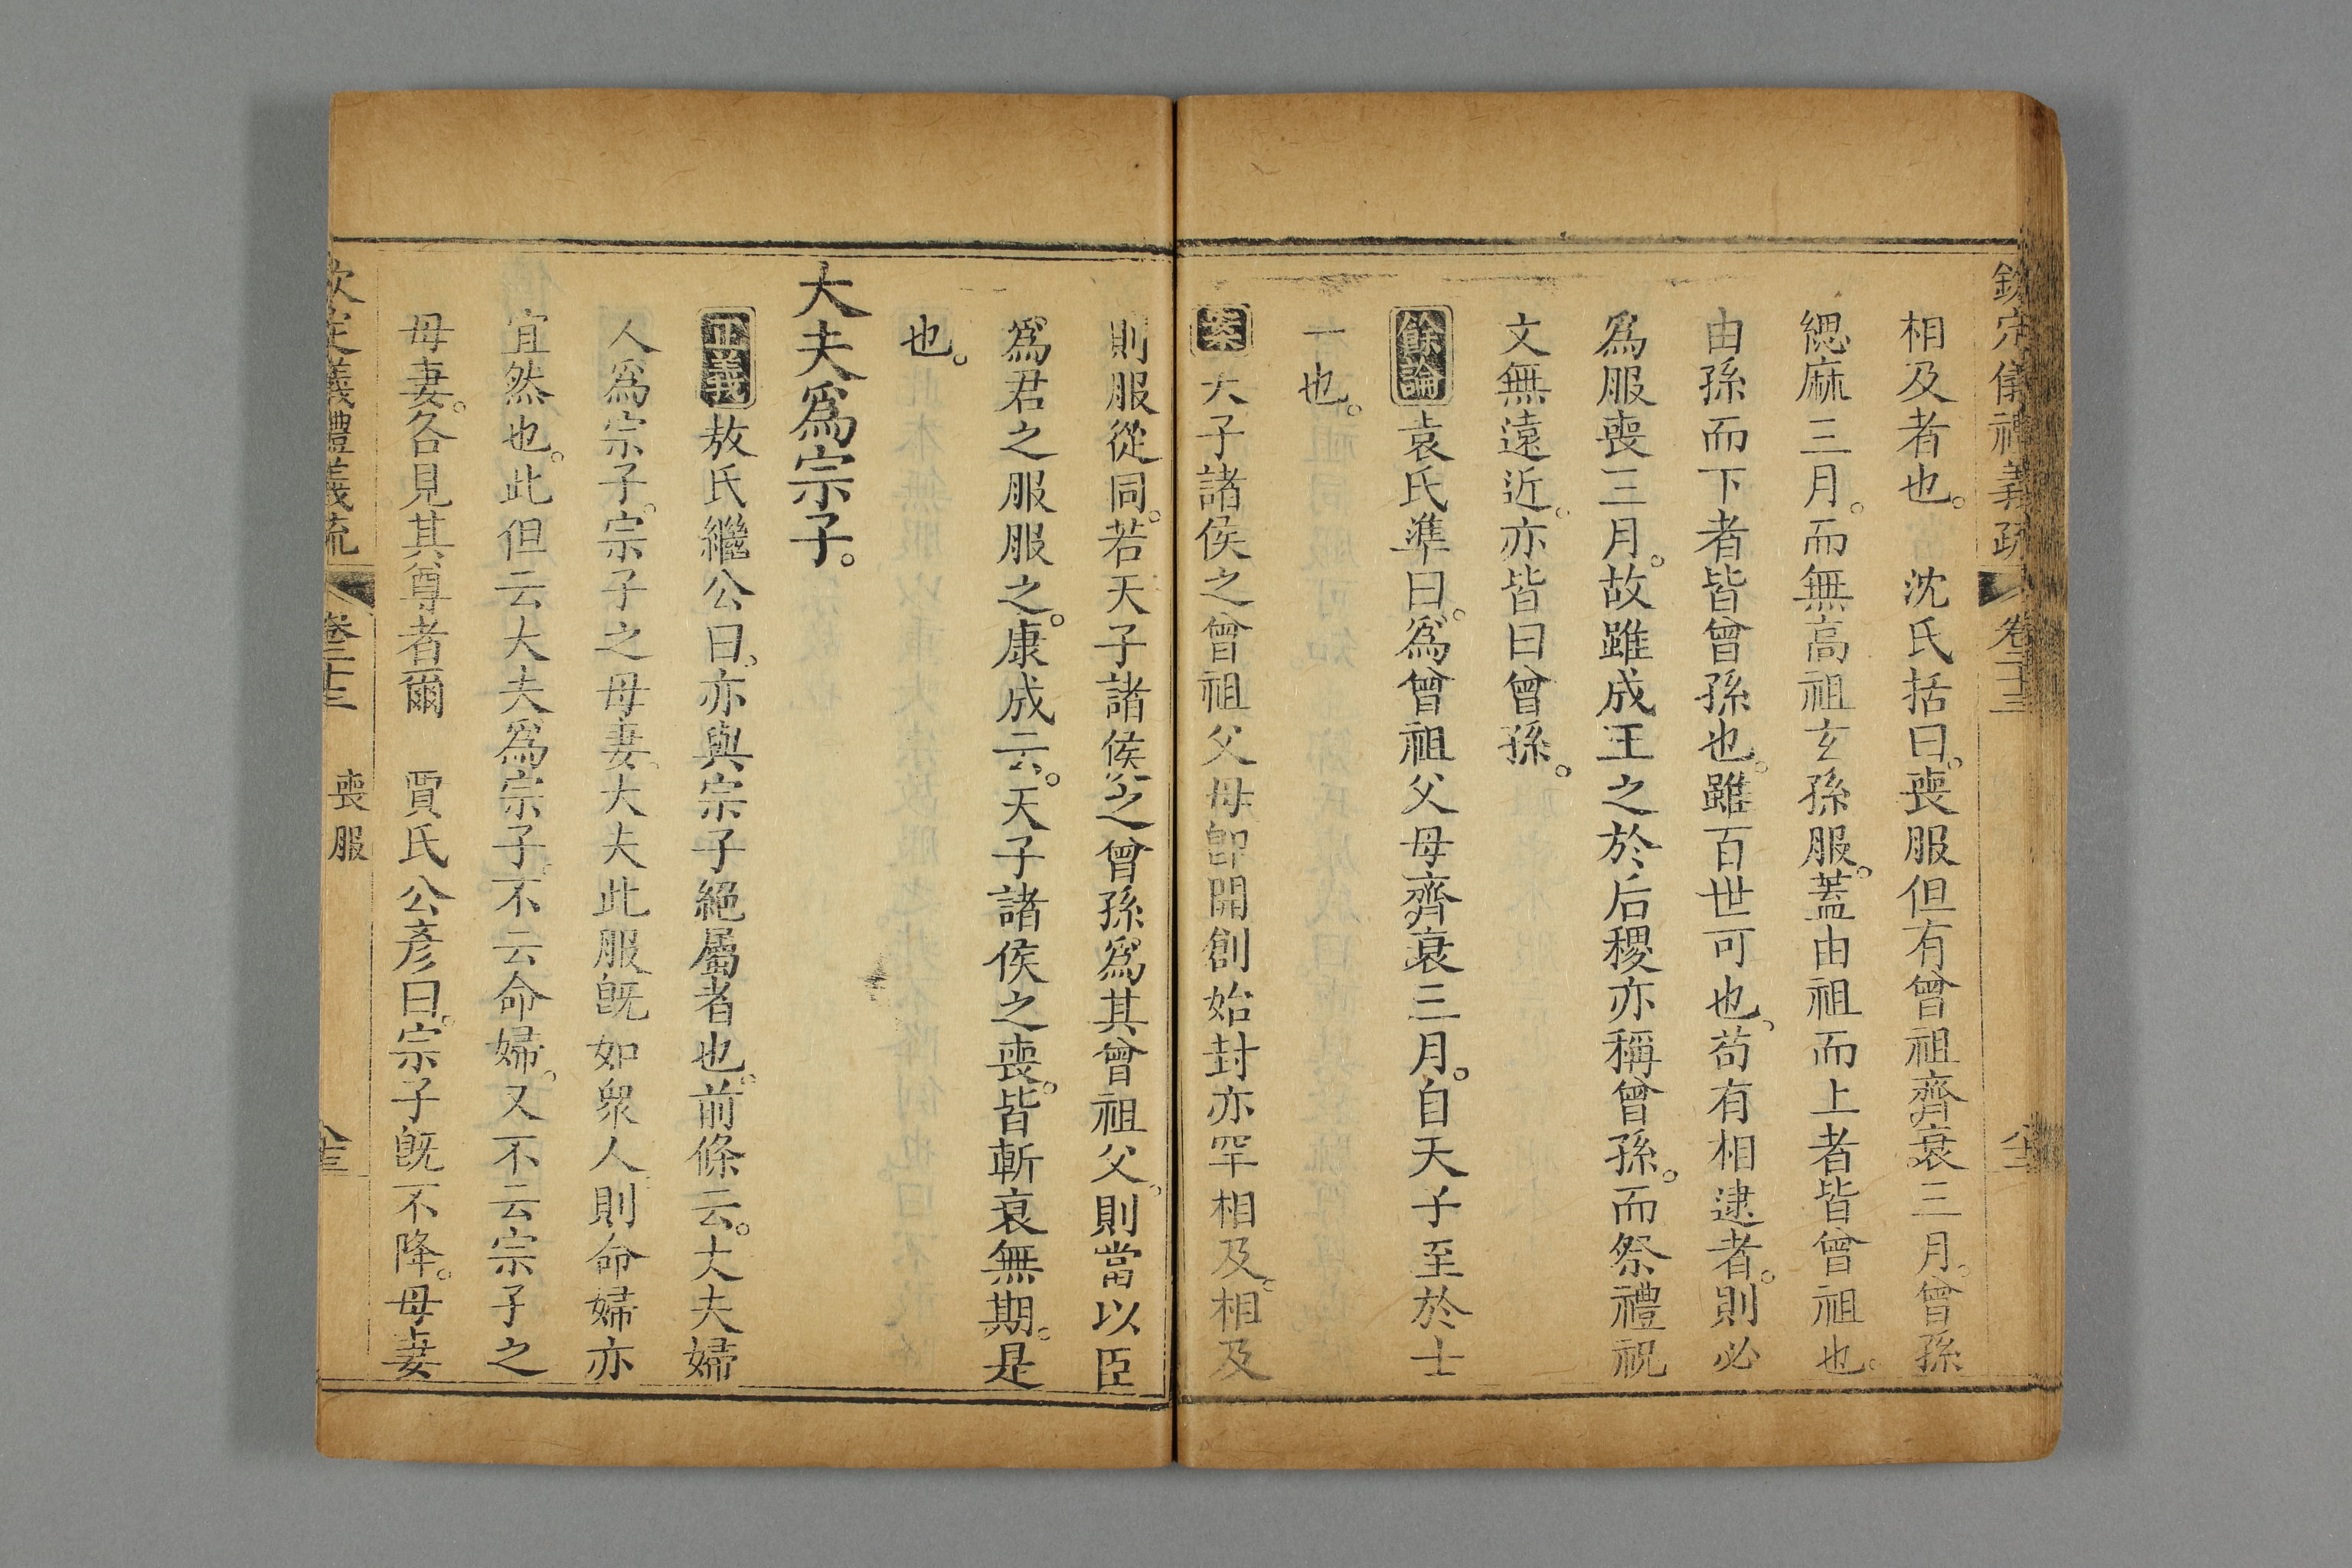 欽定儀禮義疏 卷二十三
相及者也。 沈氏括曰。喪服但有曾祖齊衰三月。曾孫
緦麻三月。而無高祖玄孫服。蓋由祖而上者皆曾祖也。
由孫而下者皆曾孫也。雖百世可也。苟有相逮者。則必
爲服喪三月。故雖成王之於后稷亦稱曾孫。而祭禮祝
文無遠近。亦皆曰曾孫。
餘論 袁氏準曰。爲曾祖父母齊衰三月。自天子至於士
一也。
案 天子諸侯之曾祖父母卽開創始封亦罕相及。相及
則服從同。若天子諸侯之曾孫爲其曾祖父。則當以臣
爲君之服服之。康成云。天子諸侯之喪。皆斬衰無期。是
也。
大夫爲宗子。
正義 敖氏繼公曰。亦與宗子絕屬者也。前條云。大夫婦
人爲宗子。宗子之母妻。大夫此服旣如衆人則命婦亦
宜然也。此但云大夫爲宗子。不云命婦。又不云宗子之
母妻。各見其尊者爾 賈氏公彥曰。宗子旣不降。母妻
欽定儀禮義疏 卷二十三 喪服